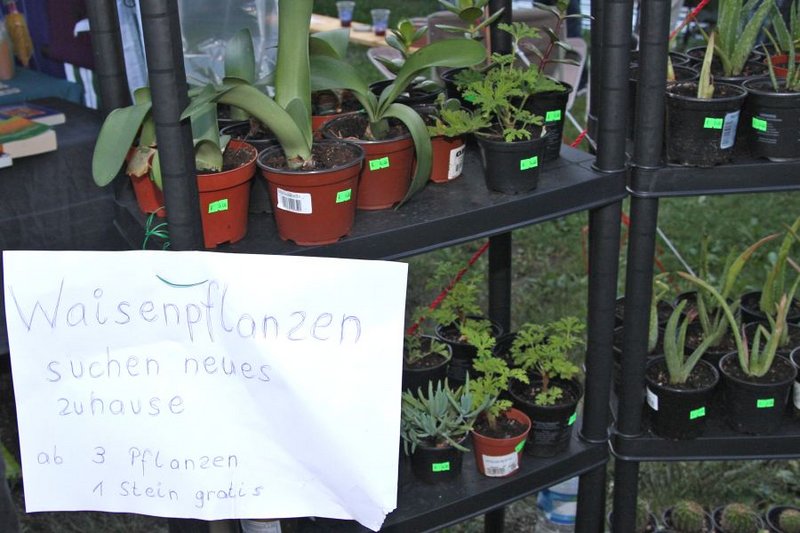 Waisenpflanzen
suchen neues
zuhause
ab 3 Pflanzen
1 Stein gratis